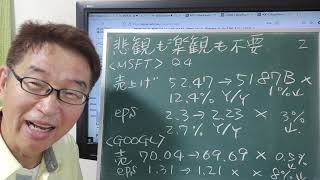 悲観も楽観も不要 2
<MSFT> Q4
売上げ 52.47→51.87B ×
12.4% Y/Y 1%↓
eps 2.3→2.23 × 3%↓
2.7% Y/Y
<GOOGL>
売 70.04→69.69 × 0.5%↓
eps 1.31→1.21 × × 8%↓